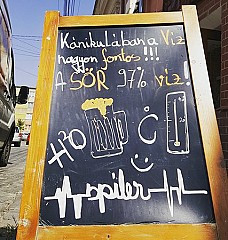 Kánikulában a Víz
nagyon fontos !!!
A SÖR 97% víz!
H²O
spíler